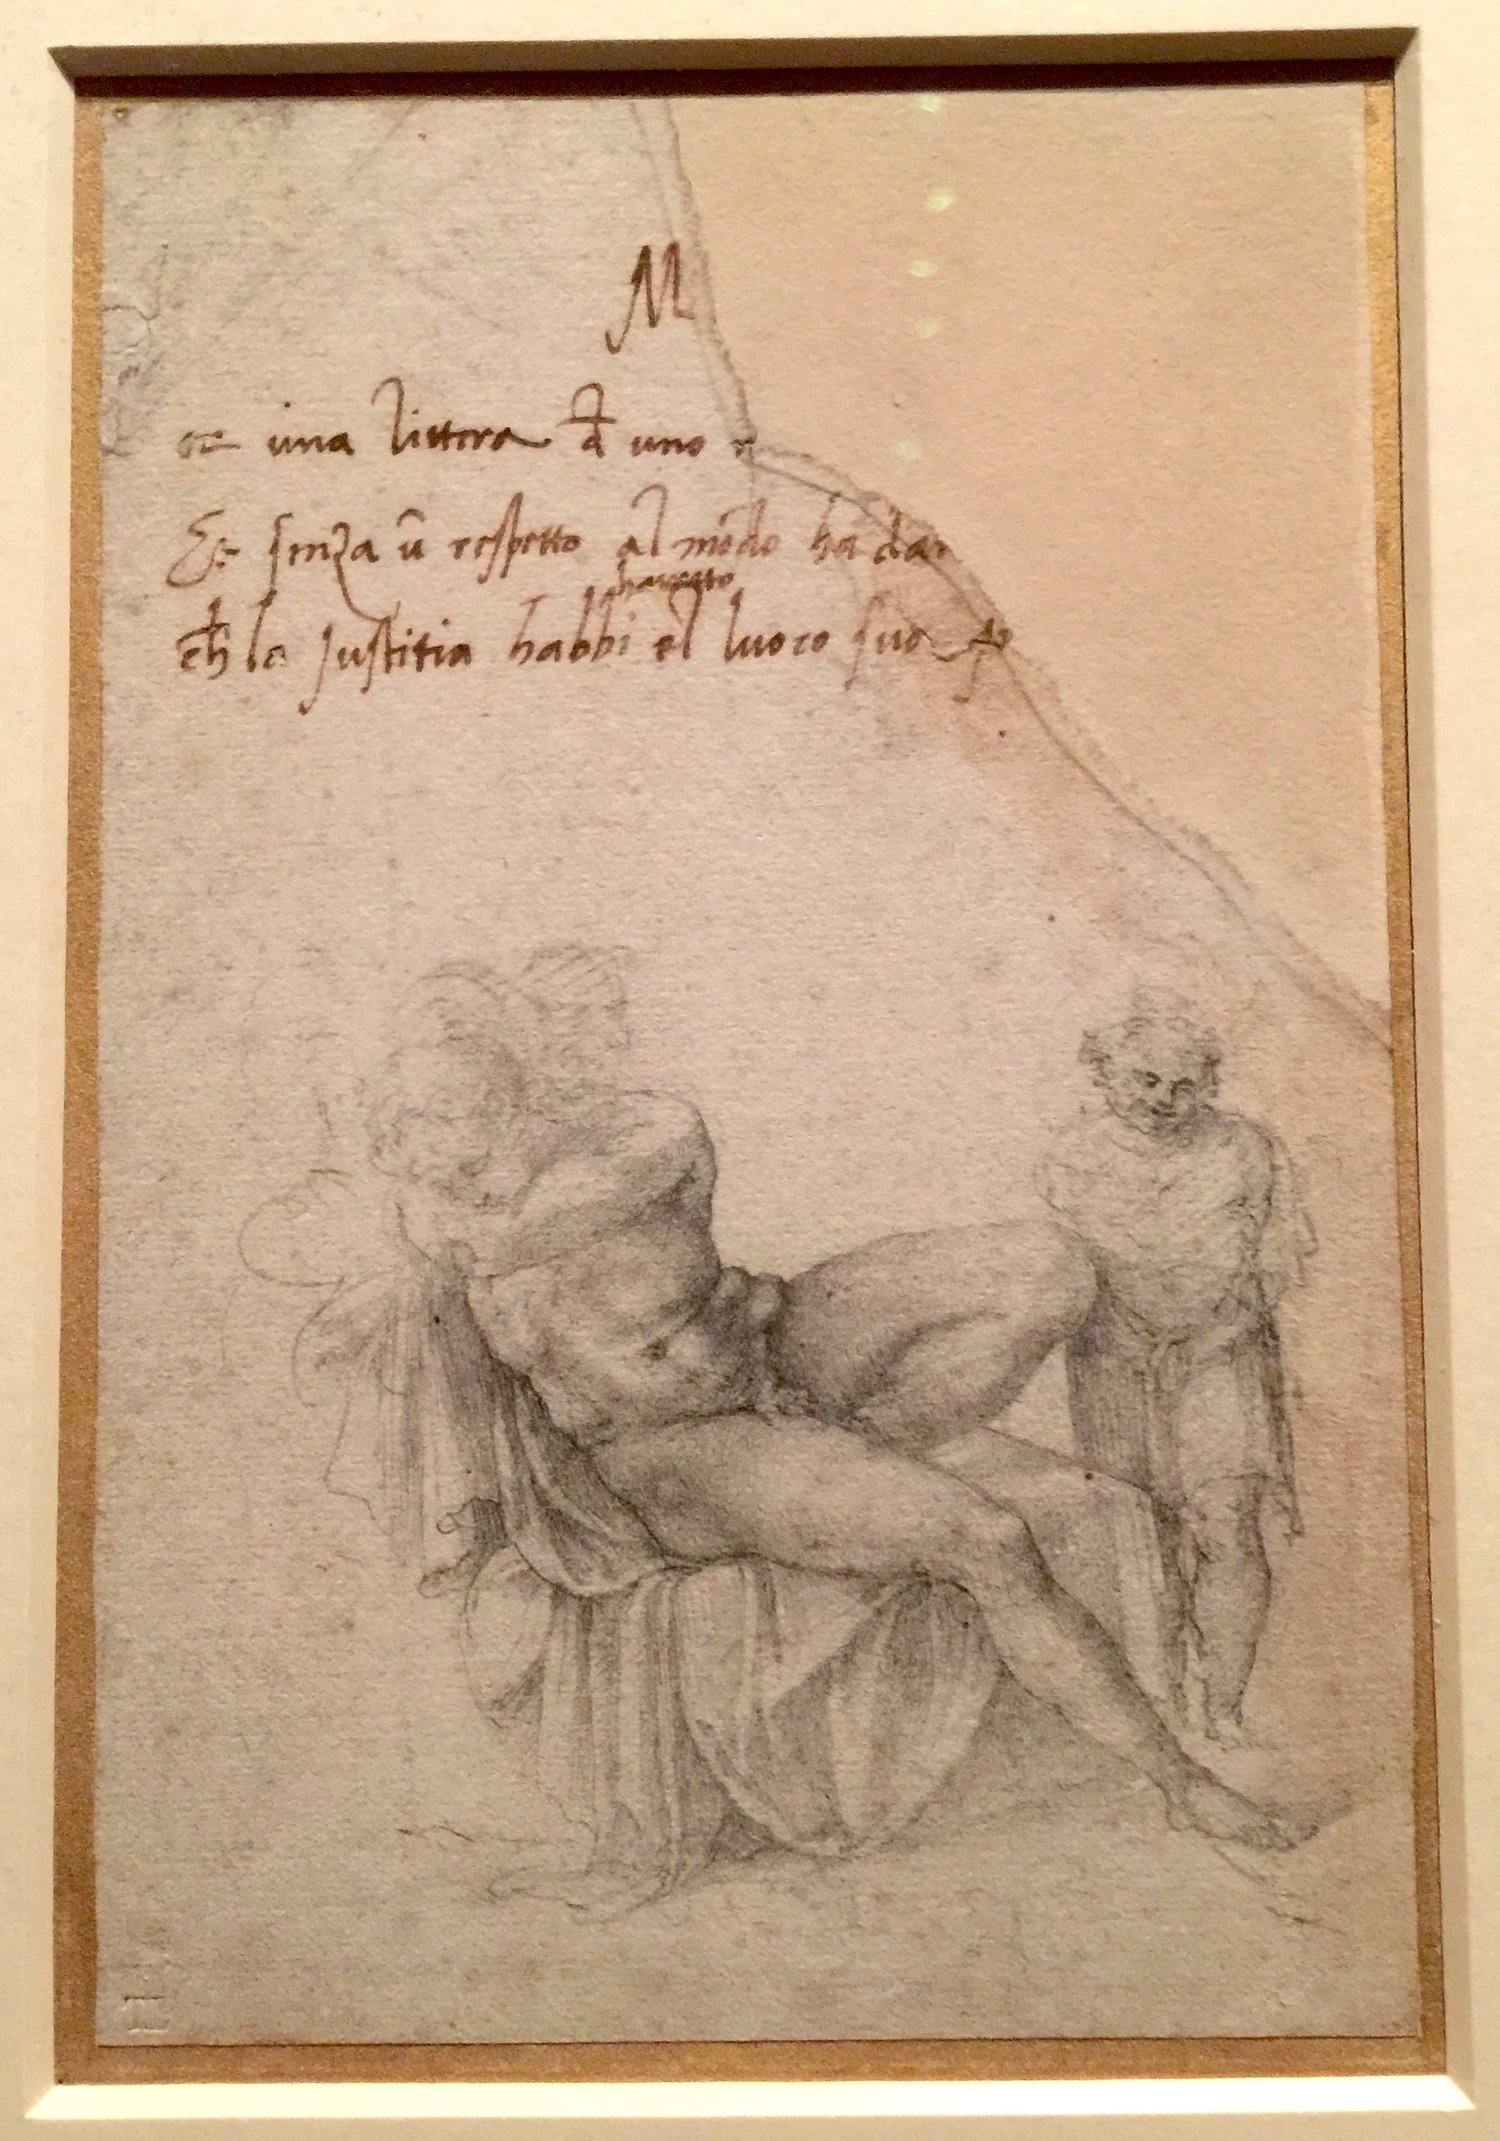 M
una littera d uno
Et senza ū respetto al mōdo ha da
havesse
ch la Justitia habbi el luoco suo
TL